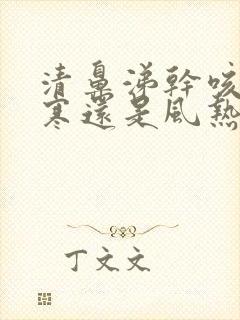 清鼻涕幹咳
寒還是風熱
丁文文